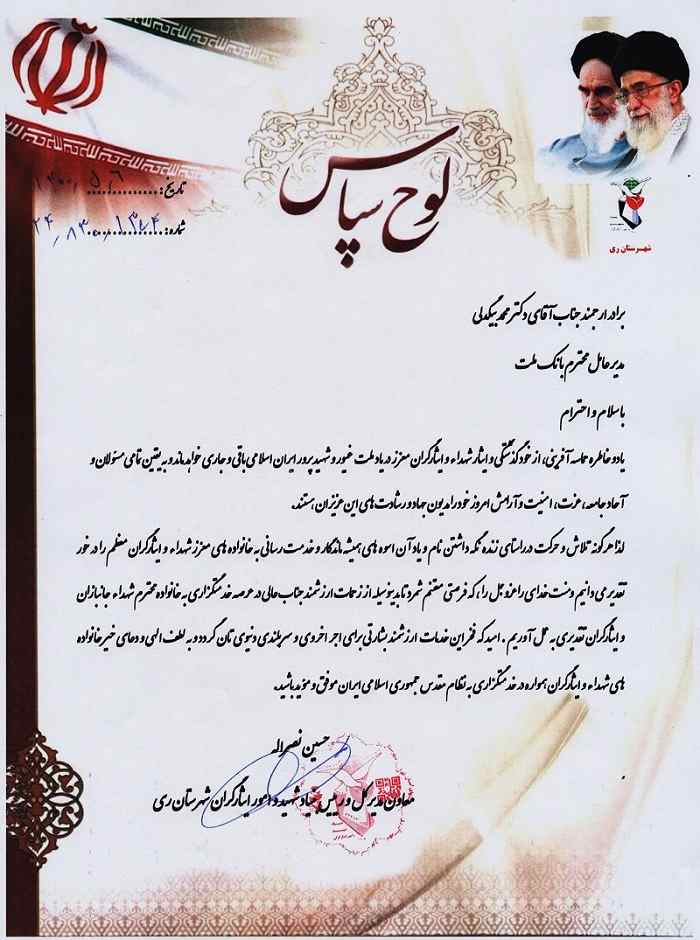 لوح سپاس
تاریخ: ۱۴۰۰/۵/۶
شماره:
شهرستان ری
برادر ارجمند جناب آقای دکتر محمد بیگدلی
مدیر عامل محترم بانک ملت
با سلام و احترام
یاد و خاطره حماسه آفرینی، از خودگذشتگی و ایثار شهداء و ایثارگران معزز در یاد ملت غیور و شهیدپرور ایران اسلامی باقی و جاری خواهد ماند و به یقین تمامی مسئولان و
آحاد جامعه، عزت، امنیت و آرامش امروز خود را مدیون جهاد و رشادت های این عزیزان هستند.
لذا هرگونه تلاش و حرکت در راستای زنده نگه داشتن نام و یاد آن اسوه های همیشه ماندگار و خدمت رسانی به خانواده های معزز شهداء و ایثارگران معظم را در خور
تقدیر می دانیم و منت خدای را عزوجل را، که فرصتی مغتنم شمرد تا بدینوسیله از زحمات ارزشمند جناب عالی در عرصه خدمتگزاری به خانواده محترم شهداء جانبازان
و ایثارگران تقدیری به عمل آوریم . امید که فخر این خدمات ارزشمند بشارتی برای اجر اخروی و سربلندی دنیوی تان گردد و به لطف الهی و دعای خیر خانواده
های شهداء و ایثارگران همواره در خدمتگزاری به نظام مقدس جمهوری اسلامی ایران موفق و مؤید باشید.
حسین نصراله
معاون مدیر کل و رییس بنیاد شهید و امور ایثارگران شهرستان ری